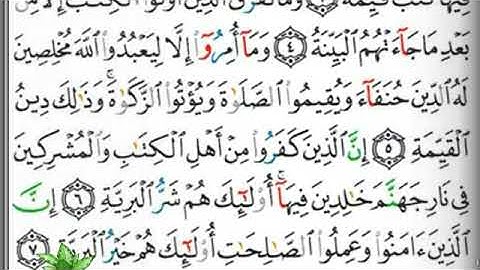 فِيهَا كُتُبٌ قَيِّمَةٌ ٣ وَمَا تَفَرَّقَ الَّذِينَ أُوتُوا الْكِتَٰبَ إِلَّا مِن
بَعْدِ مَا جَآءَتْهُمُ الْبَيِّنَةُ ٤ وَمَآ أُمِرُوٓا إِلَّا لِيَعْبُدُوا اللَّهَ مُخْلِصِينَ
لَهُ الدِّينَ حُنَفَآءَ وَيُقِيمُوا الصَّلَوٰةَ وَيُؤْتُوا الزَّكَوٰةَ ۚ وَذَٰلِكَ دِينُ
الْقَيِّمَةِ ٥ إِنَّ الَّذِينَ كَفَرُوا مِنْ أَهْلِ الْكِتَٰبِ وَالْمُشْرِكِينَ
فِى نَارِ جَهَنَّمَ خَٰلِدِينَ فِيهَآ ۚ أُولَٰٓئِكَ هُمْ شَرُّ الْبَرِيَّةِ ٦ إِنَّ
الَّذِينَ ءَامَنُوا وَعَمِلُوا الصَّٰلِحَٰتِ أُولَٰٓئِكَ هُمْ خَيْرُ الْبَرِيَّةِ ٧